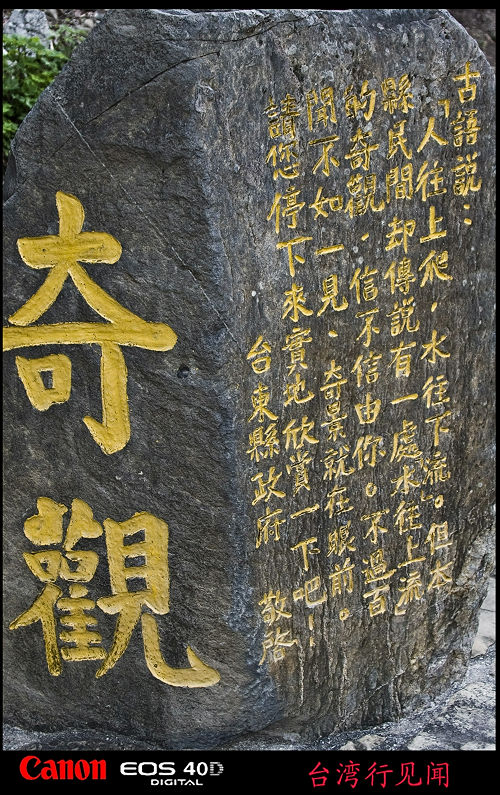 奇觀
古語說：
「人往上爬，水往下流。」但本
縣民間却傳說有一處水往上流
的奇觀，信不信由你。不過百
聞不如一見、奇景就在眼前。
請您停下來實地欣賞一下吧！
台東縣政府 敬啓
Canon EOS 40D
DIGITAL
台湾行见闻